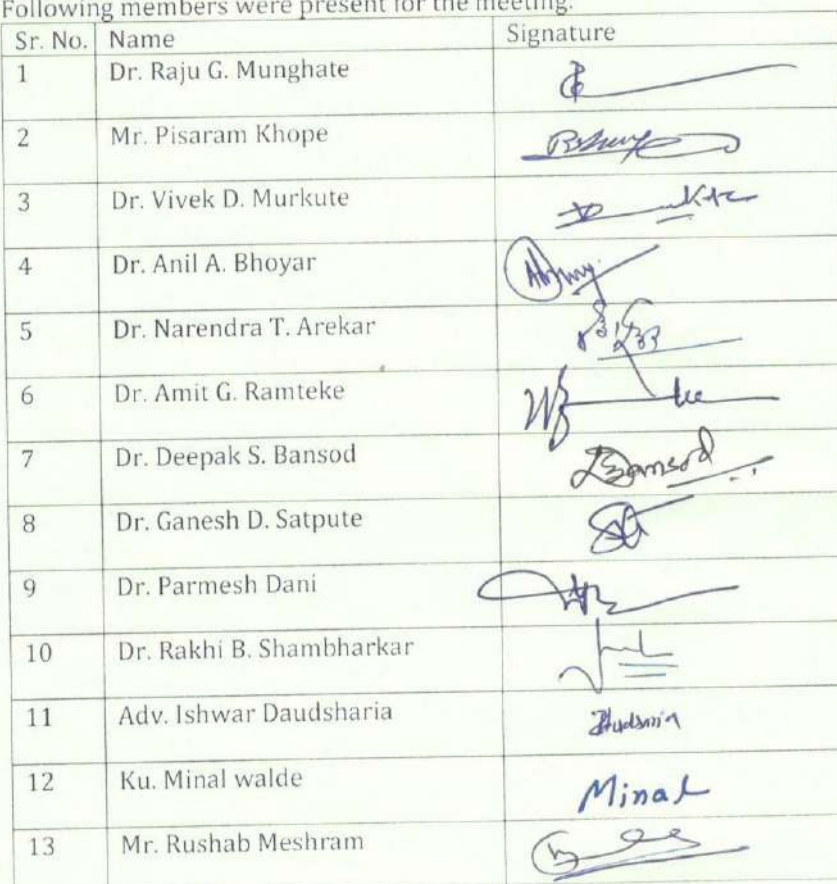 Following members were present for the meeting.
Sr. No. Name Signature
1 Dr. Raju G. Munghate
2 Mr. Pisaram Khope
3 Dr. Vivek D. Murkute
4 Dr. Anil A. Bhoyar
5 Dr. Narendra T. Arekar
6 Dr. Amit G. Ramteke
7 Dr. Deepak S. Bansod Bansod
8 Dr. Ganesh D. Satpute
9 Dr. Parmesh Dani
10 Dr. Rakhi B. Shambharkar
11 Adv. Ishwar Daudsharia
12 Ku. Minal walde Minal
13 Mr. Rushab Meshram